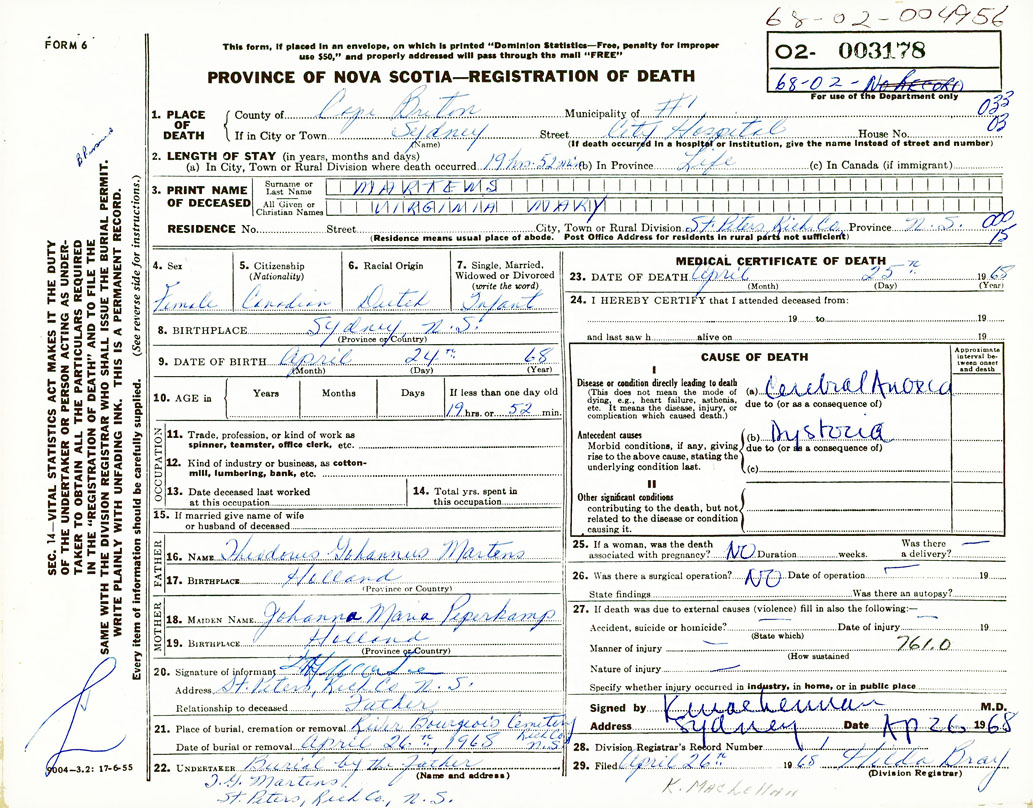 68-02-004956
FORM 6
This form, if placed in an envelope, on which is printed "Dominion Statistics—Free, penalty for improper
use $50," and properly addressed will pass through the mail "FREE"
O2- 003178
PROVINCE OF NOVA SCOTIA—REGISTRATION OF DEATH
68-02- NO RECORD
For use of the Department only
1. PLACE OF DEATH County of Cape Breton Municipality of #1 033
If in City or Town Sydney Street City Hospital House No. 03
(Name) (If death occurred in a hospital or institution, give the name instead of street and number)
2. LENGTH OF STAY (in years, months and days)
(a) In City, Town or Rural Division where death occurred 19 hrs. 52 min (b) In Province Life (c) In Canada (if immigrant)
3. PRINT NAME OF DECEASED Surname or Last Name MARTENS
All Given or Christian Names VIRGINIA MARY
RESIDENCE No. Street City, Town or Rural Division St. Peters, Rich Co. Province N.S. 000 15
(Residence means usual place of abode. Post Office Address for residents in rural parts not sufficient)
SEC. 14—VITAL STATISTICS ACT MAKES IT THE DUTY
OF THE UNDERTAKER OR PERSON ACTING AS UNDER-
TAKER TO OBTAIN ALL THE PARTICULARS REQUIRED
IN THE "REGISTRATION OF DEATH" AND TO FILE THE
SAME WITH THE DIVISION REGISTRAR WHO SHALL ISSUE THE BURIAL PERMIT.
WRITE PLAINLY WITH UNFADING INK. THIS IS A PERMANENT RECORD.
Every item of information should be carefully supplied. (See reverse side for instructions.)
4. Sex Female
5. Citizenship (Nationality) Canadian
6. Racial Origin Dutch
7. Single, Married, Widowed or Divorced (write the word) Infant
8. BIRTHPLACE Sydney, N.S.
(Province or Country)
9. DATE OF BIRTH April 24th 68
(Month) (Day) (Year)
10. AGE in Years Months Days If less than one day old
19 hrs. or 52 min.
OCCUPATION
11. Trade, profession, or kind of work as
spinner, teamster, office clerk, etc.
12. Kind of industry or business, as cotton-
mill, lumbering, bank, etc.
13. Date deceased last worked
at this occupation
14. Total yrs. spent in
this occupation
15. If married give name of wife
or husband of deceased
FATHER
16. NAME Theodorus Johannus Martens
17. BIRTHPLACE Holland
(Province or Country)
MOTHER
18. MAIDEN NAME Johanna Maria Peperkamp
19. BIRTHPLACE Holland
(Province or Country)
20. Signature of informant
Address St. Peters, Rich Co. N.S.
Relationship to deceased Father
21. Place of burial, cremation or removal River Bourgeois Cemetery
Rich Co. N.S.
Date of burial or removal April 26th, 1968
22. UNDERTAKER Burial by the Father
(Name and address)
T.G. Martens,
St. Peters, Rich Co., N.S.
9004—3.2: 17-6-55
MEDICAL CERTIFICATE OF DEATH
23. DATE OF DEATH April 25th 1968
(Month) (Day) (Year)
24. I HEREBY CERTIFY that I attended deceased from:
19 to 19
and last saw h alive on 19
CAUSE OF DEATH
Approximate interval between onset and death
I
Disease or condition directly leading to death
(This does not mean the mode of
dying, e.g., heart failure, asthenia,
etc. It means the disease, injury, or
complication which caused death.)
(a) Cerebral Anoxia
due to (or as a consequence of)
Antecedent causes
Morbid conditions, if any, giving
rise to the above cause, stating the
underlying condition last.
(b) Dystocia
due to (or as a consequence of)
(c)
II
Other significant conditions
contributing to the death, but not
related to the disease or condition
causing it.
25. If a woman, was the death Was there —
associated with pregnancy? NO Duration weeks. a delivery?
26. Was there a surgical operation? NO Date of operation — 19
State findings Was there an autopsy?
27. If death was due to external causes (violence) fill in also the following:—
Accident, suicide or homicide? — Date of injury — 19
(State which)
Manner of injury — 761.0
(How sustained
Nature of injury —
Specify whether injury occurred in industry, in home, or in public place
Signed by K MacLennan M.D.
Address Sydney Date Ap 26 1968
28. Division Registrar's Record Number
29. Filed April 26th 1968 Hilda Bray
(Division Registrar)
K. MacLellan